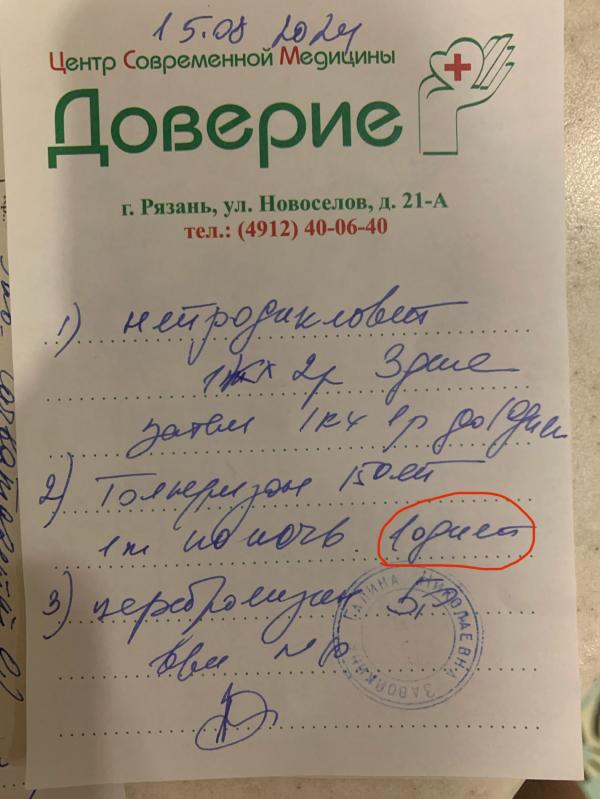 15.08 2024
Центр Современной Медицины
Доверие
г. Рязань, ул. Новоселов, д. 21-А
тел.: (4912) 40-06-40
1) нейродикловит
1к х 2р 3 дня
затем 1к х 1р до 10 дней
2) Толперизон 150мг
1т на ночь 10 дней
3) церебролизин 5,0
в/м №10
ГАЛИНА НИКОЛАЕВНА